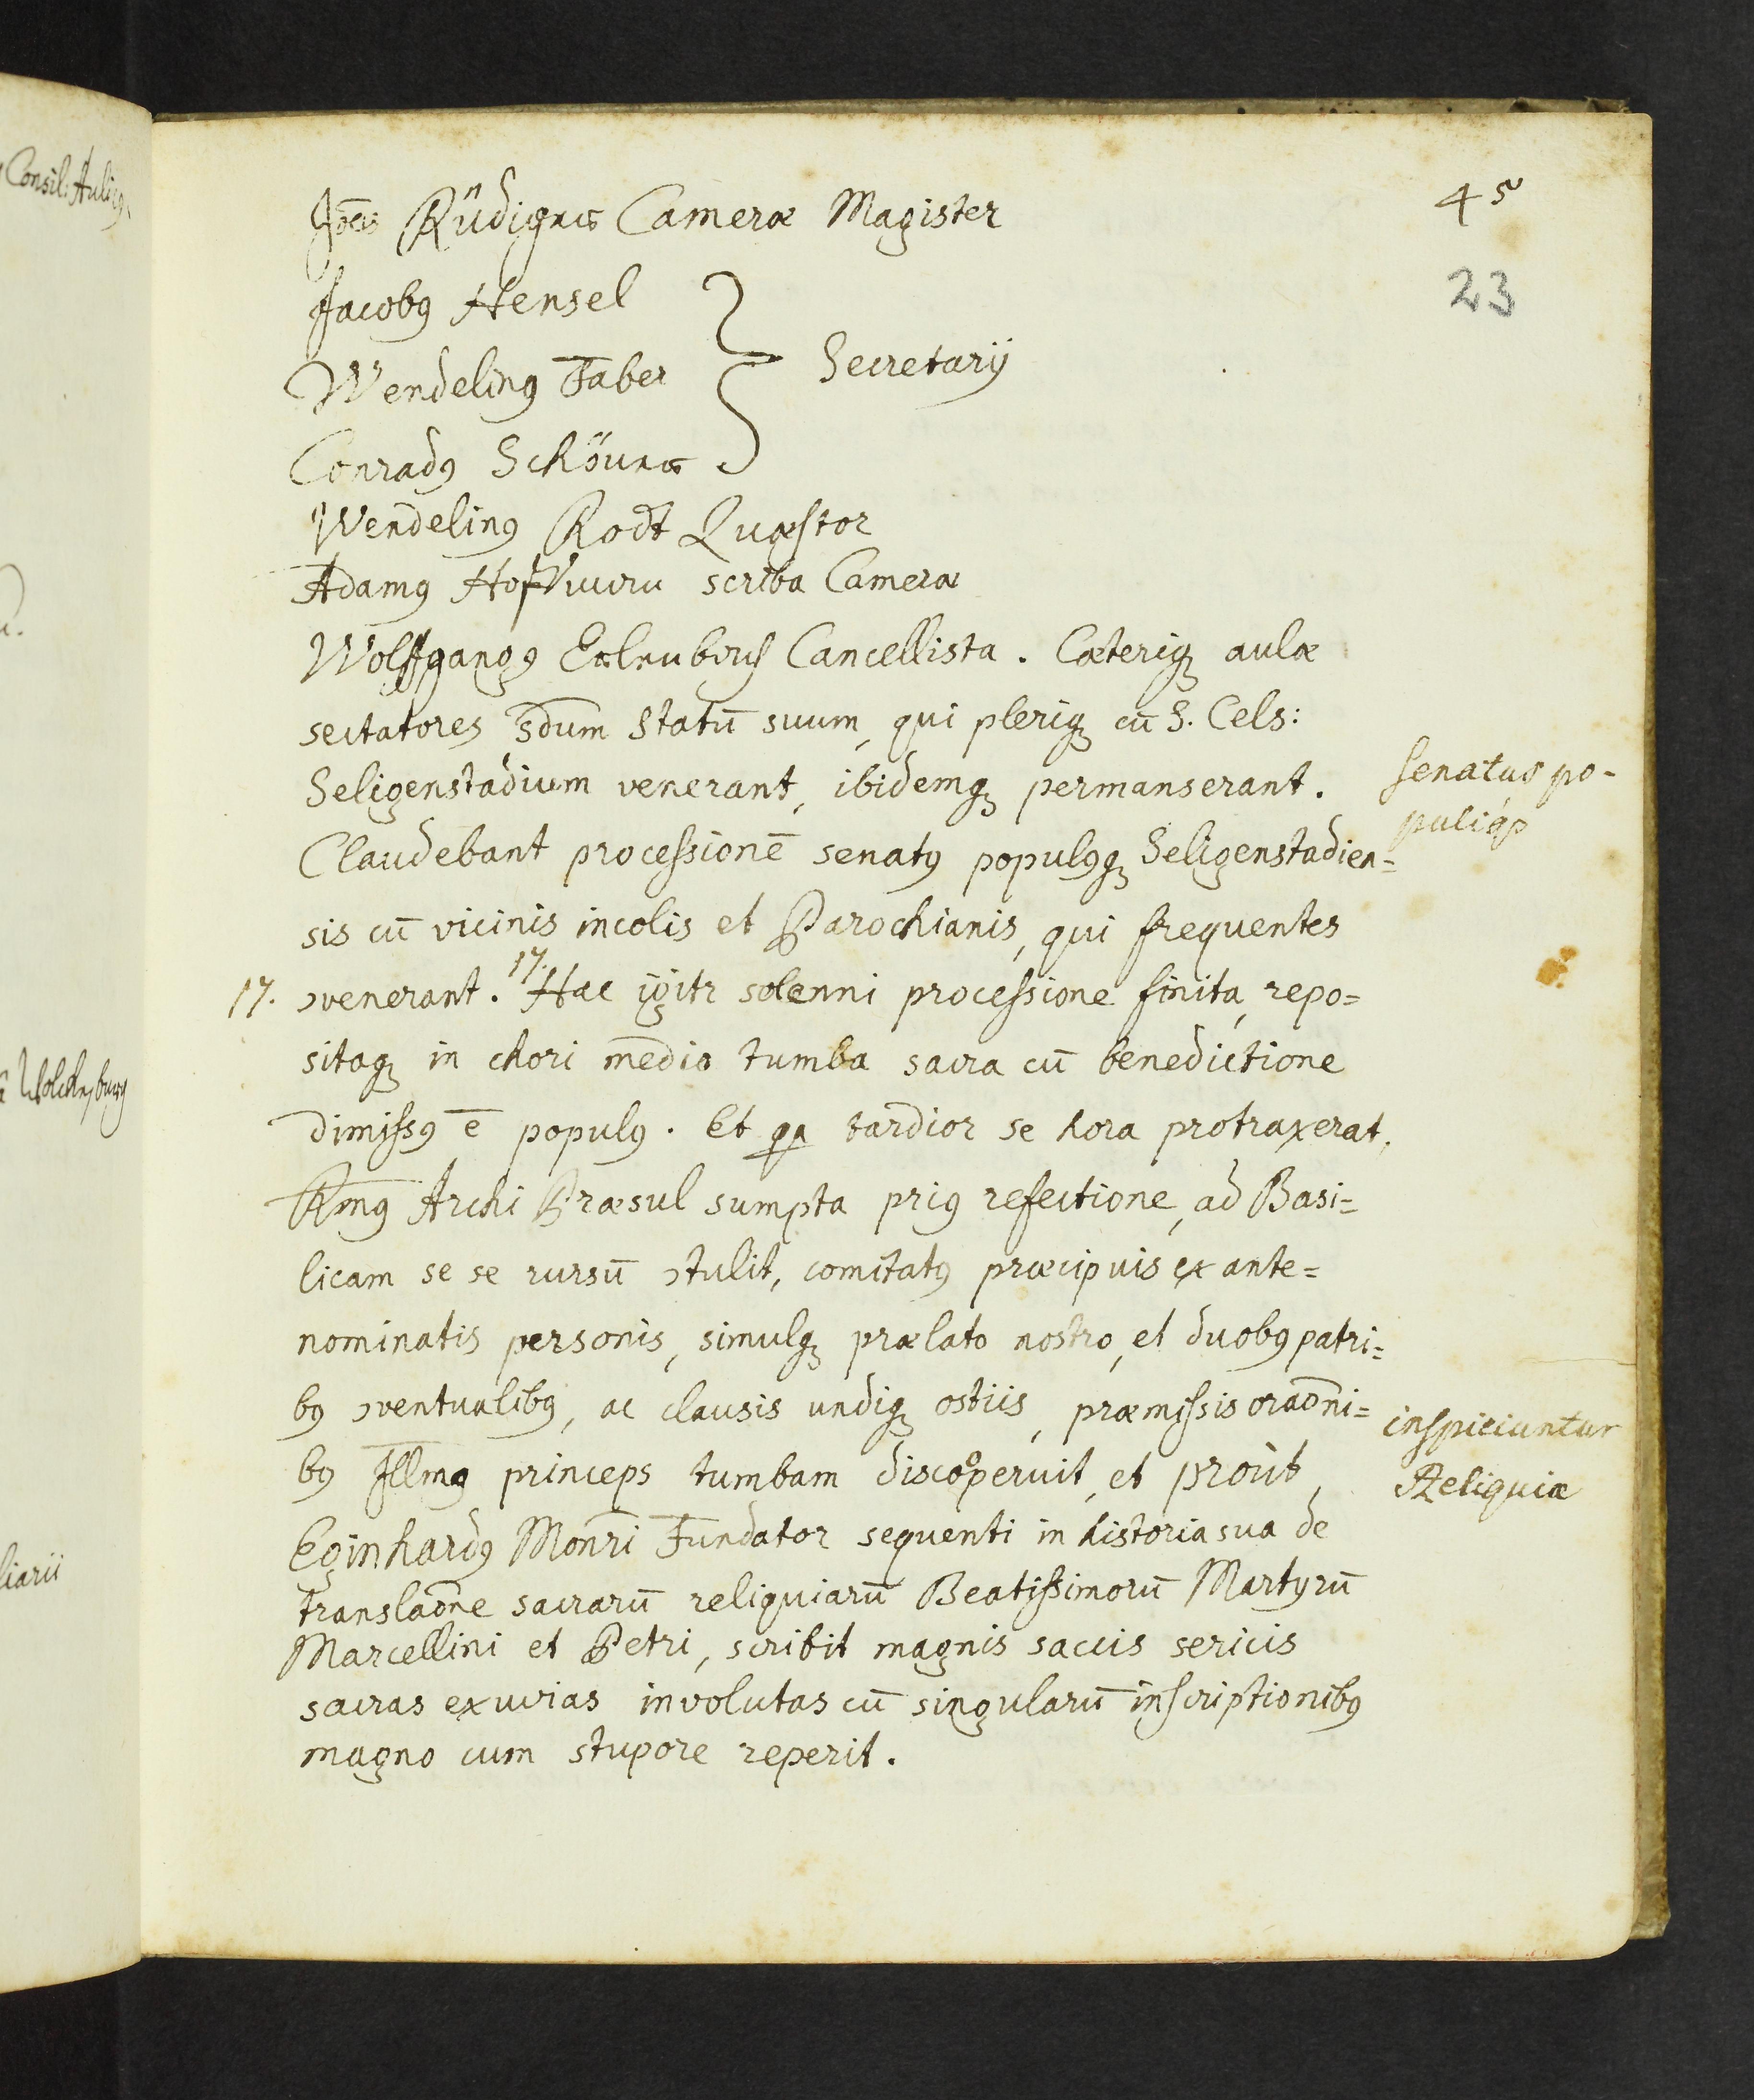 Consil: Aulicꝰ
45
23
Joēs Rüdiger Cameræ Magister
Jacobꝰ Hensel
Wendelinꝰ Faber
Secretarij
Conradꝰ Schöner
Wendelinꝰ Rodt Quæstor
Adamꝰ scriba Cameræ
Wolffgangꝰ Cancellista. Cæteriq̨ aulæ
sectatores s̄dum Statū suum, qui pleriq̨ cū S. Cels:
Seligenstadium venerant, ibidemq̨ permanserant.
Senatus po-
puliq̨
Claudebant processionē senatꝰ populꝰq̨ Seligenstadien=
sis cū vicinis incolis et Parochianis, qui frequentes
17. ↄvenerant. 17. Hac igitr solenni processione finita, repo=
sitaq̨ in chori medio tumba sacra cū benedictione
dimissꝰ ē populꝰ. Et qa tardior se hora protraxerat,
Rm̄ꝰ Archi Præsul sumpta priꝰ refectione, ad Basi=
licam se se rursū ↄtulit, comitatꝰ præcipuis ex ante=
nominatis personis, simulq̨ prælato nostro, et duobꝰ patri=
bꝰ ↄventualibꝰ, ac clausis undiq̨ ostiis, præmissis oraōni=
inspiciuntur
Reliquiæ
bꝰ Illmꝰ princeps tumbam discooperuit, et proùt,
Eginhardꝰ Monr̄i Fundator sequenti in historia sua de
translaōne sacrarū reliquiarū Beatissimorū Martyrū
Marcellini et Petri, scribit magnis saccis sericis
sacras exuvias involutas cū singularū inscriptionibꝰ
magno cum stupore reperit.
liarii